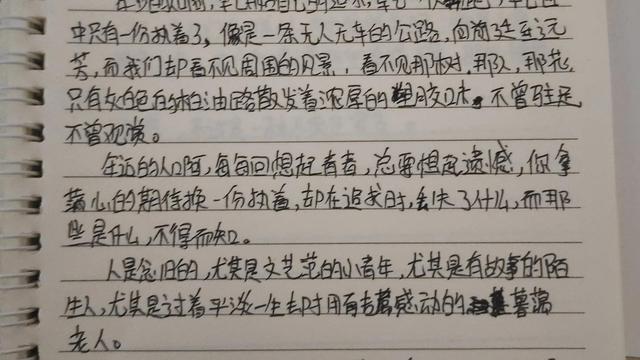 中只有一份执着了,像是一条无人无车的公路,向前延至远
芳,而我们却看不见周围的风景,看不见那树,那人,那花,
只有灰白色的柏油路散发着浓厚的塑胶口味。不曾驻足
不曾观赏。
年迈的人口阿,每每回想起青春,总要想起遗憾,你拿
满心的期待换一份执着,却在追求时,丢失了什么,而那
些是什么,不得而知。
人是念旧的,尤其是文艺范的小青年,尤其是有故事的陌
生人,尤其是过着平淡一生却时用有感动的暮霭
老人。